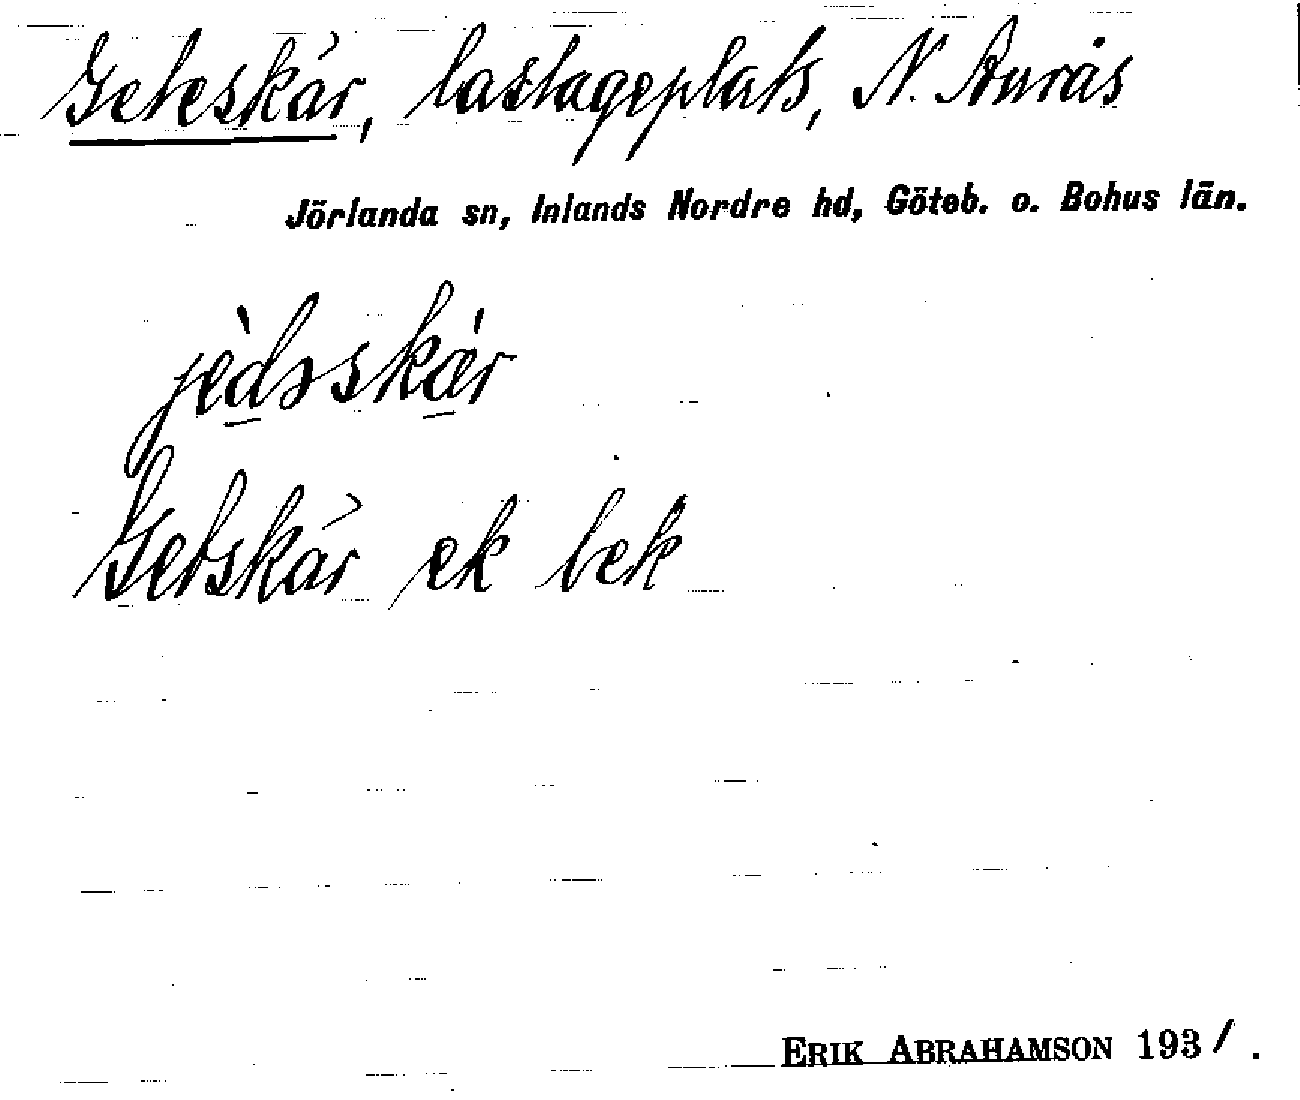 Geteskär, lastageplats, N. Anrås
Jörlanda sn, Inlands Nordre hd, Göteb. o. Bohus län.
jèdsskær
Getskär ek bek
ERIK ABRAHAMSON 1931.